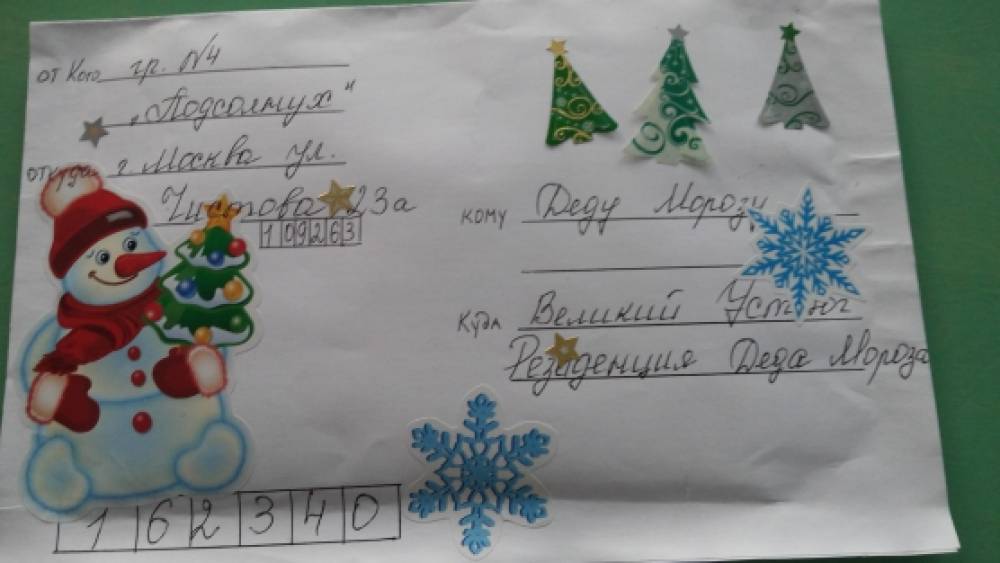 от Кого гр. №4
„Подсолнух"
откуда г. Москва ул.
Чистова 23а
109263
кому Деду Морозу
Куда Великий Устюг
Резиденция Деда Мороза
162340